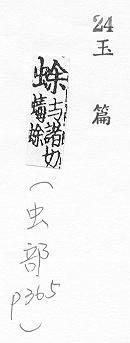 24
玉篇
蜍
与諸切
蜍
(虫部
p365)